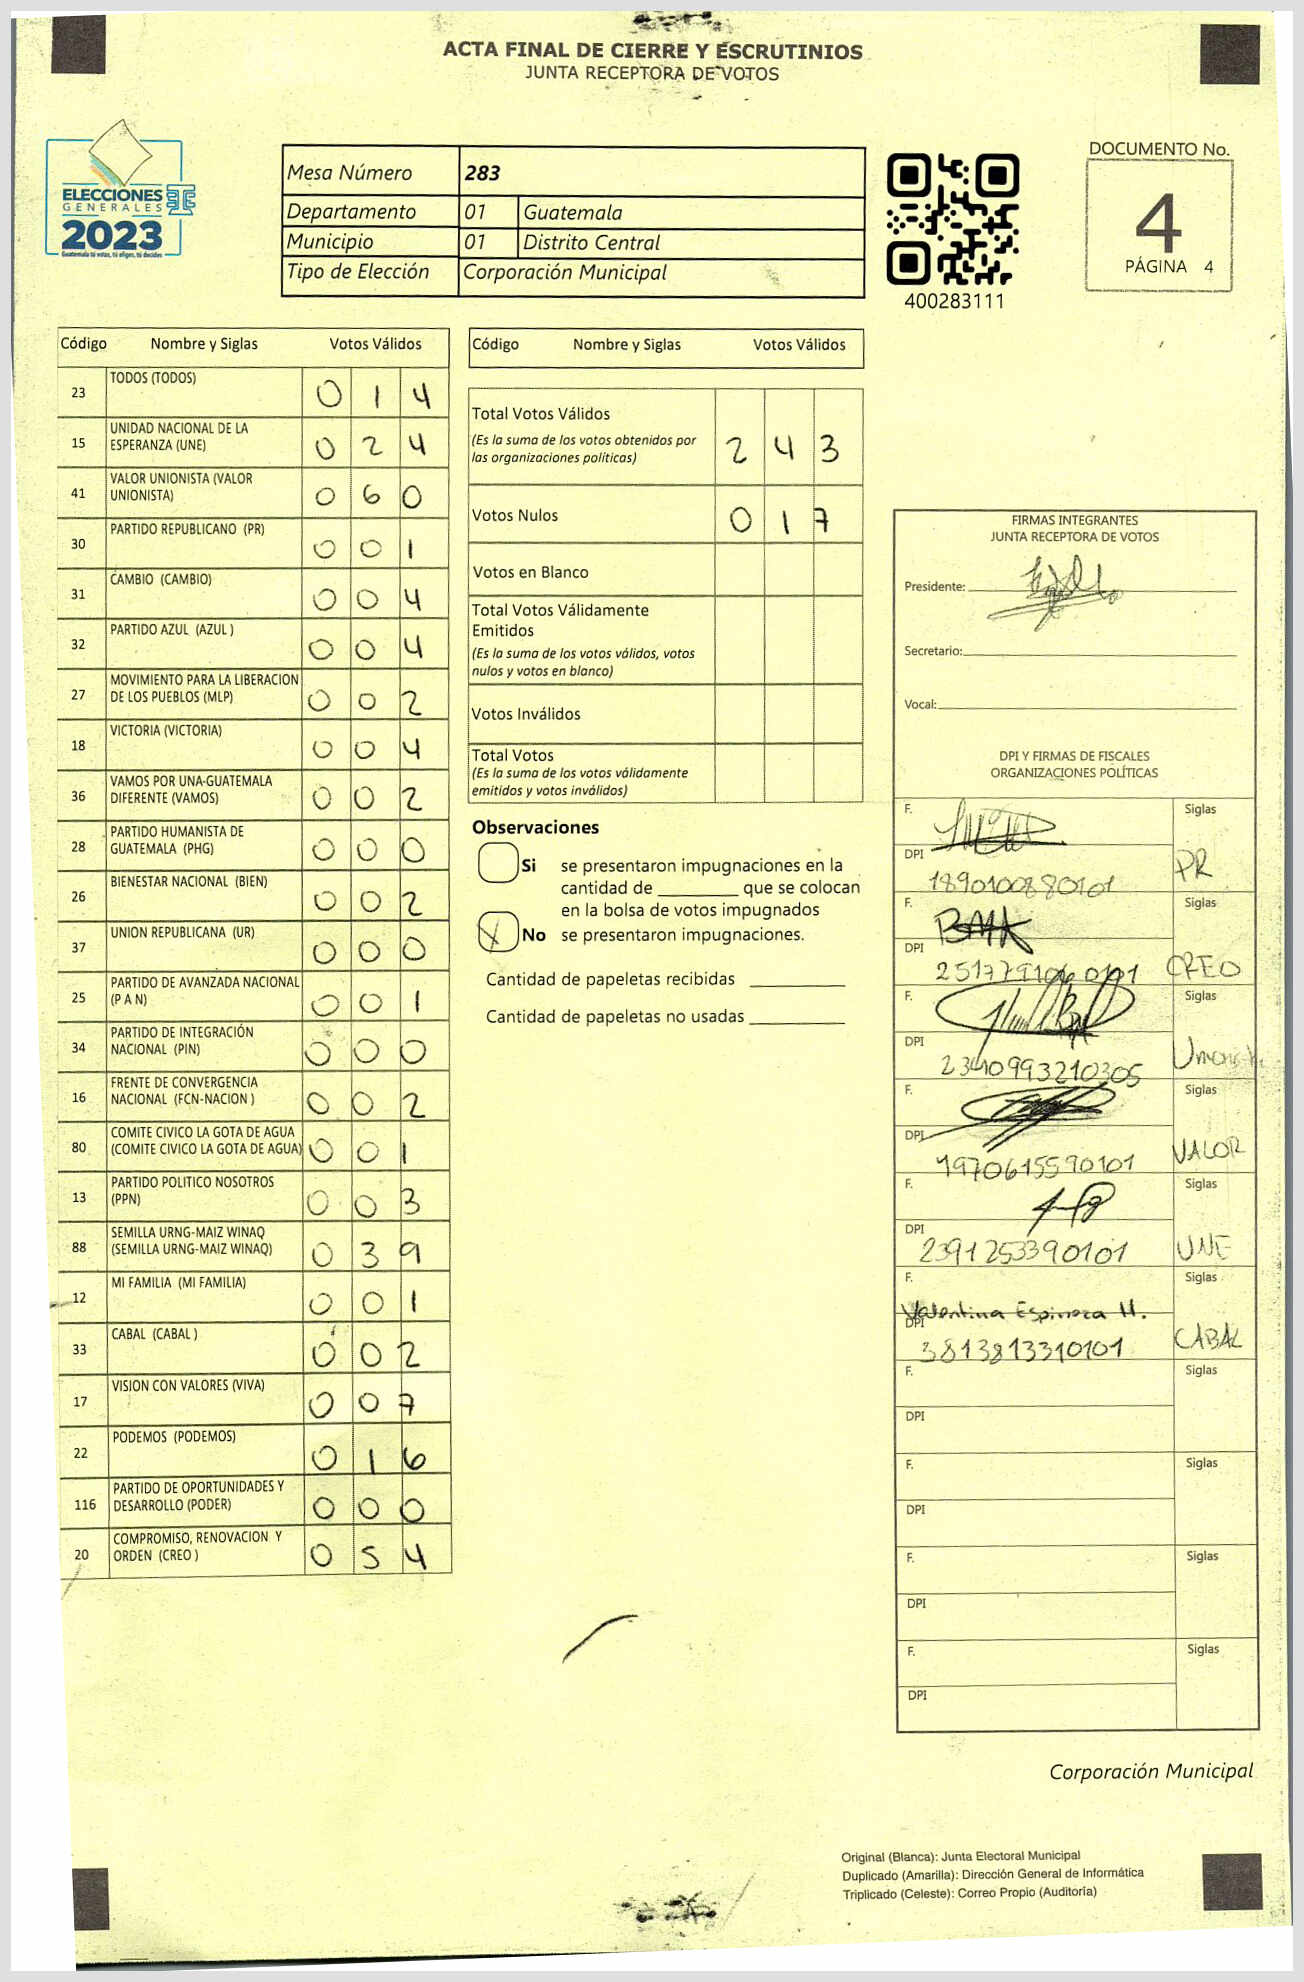 ACTA FINAL DE CIERRE Y ESCRUTINIOS
JUNTA RECEPTORA DE VOTOS
ELECCIONES
GENERALES
2023
Guatemala tú votas, tú eliges, tú decides
Mesa Número 283
Departamento 01 Guatemala
Municipio 01 Distrito Central
Tipo de Elección Corporación Municipal
400283111
DOCUMENTO No.
4
PÁGINA 4
Código Nombre y Siglas Votos Válidos
23 TODOS (TODOS) 0 1 4
15 UNIDAD NACIONAL DE LA
ESPERANZA (UNE) 0 2 4
41 VALOR UNIONISTA (VALOR
UNIONISTA) 0 6 0
30 PARTIDO REPUBLICANO (PR) 0 0 1
31 CAMBIO (CAMBIO) 0 0 4
32 PARTIDO AZUL (AZUL ) 0 0 4
27 MOVIMIENTO PARA LA LIBERACION
DE LOS PUEBLOS (MLP) 0 0 2
18 VICTORIA (VICTORIA) 0 0 4
36 VAMOS POR UNA GUATEMALA
DIFERENTE (VAMOS) 0 0 2
28 PARTIDO HUMANISTA DE
GUATEMALA (PHG) 0 0 0
26 BIENESTAR NACIONAL (BIEN) 0 0 2
37 UNION REPUBLICANA (UR) 0 0 0
25 PARTIDO DE AVANZADA NACIONAL
(P A N) 0 0 1
34 PARTIDO DE INTEGRACIÓN
NACIONAL (PIN) 0 0 0
16 FRENTE DE CONVERGENCIA
NACIONAL (FCN-NACION ) 0 0 2
80 COMITE CIVICO LA GOTA DE AGUA
(COMITE CIVICO LA GOTA DE AGUA) 0 0 1
13 PARTIDO POLITICO NOSOTROS
(PPN) 0 0 3
88 SEMILLA URNG-MAIZ WINAQ
(SEMILLA URNG-MAIZ WINAQ) 0 3 9
12 MI FAMILIA (MI FAMILIA) 0 0 1
33 CABAL (CABAL ) 0 0 2
17 VISION CON VALORES (VIVA) 0 0 7
22 PODEMOS (PODEMOS) 0 1 6
116 PARTIDO DE OPORTUNIDADES Y
DESARROLLO (PODER) 0 0 0
20 COMPROMISO, RENOVACION Y
ORDEN (CREO ) 0 5 4
Código Nombre y Siglas Votos Válidos
Total Votos Válidos
(Es la suma de los votos obtenidos por
las organizaciones politicas) 2 4 3
Votos Nulos 0 1 7
Votos en Blanco
Total Votos Válidamente
Emitidos
(Es la suma de los votos válidos, votos
nulos y votos en blanco)
Votos Inválidos
Total Votos
(Es la suma de los votos válidamente
emitidos y votos inválidos)
Observaciones
Si se presentaron impugnaciones en la
cantidad de ________ que se colocan
en la bolsa de votos impugnados
X No se presentaron impugnaciones.
Cantidad de papeletas recibidas
Cantidad de papeletas no usadas
FIRMAS INTEGRANTES
JUNTA RECEPTORA DE VOTOS
Presidente:
Secretario:
Vocal:
DPI Y FIRMAS DE FISCALES
ORGANIZACIONES POLÍTICAS
F. Siglas
DPI 1890100880101 PR
F. Siglas
DPI CREO
F. Siglas
DPI 2340993210305
F. Siglas
DPI 1970615590101 VALOR
F. Siglas
DPI 2391253390101 UNE
F. Siglas
Valentina Espinoza H.
DPI 3813813310101 CABAL
F. Siglas
DPI
F. Siglas
DPI
F. Siglas
DPI
F. Siglas
DPI
Corporación Municipal
Original (Blanca): Junta Electoral Municipal
Duplicado (Amarilla): Dirección General de Informática
Triplicado (Celeste): Correo Propio (Auditoría)